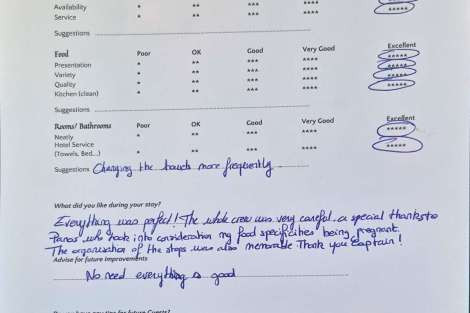 Availability * ** *** **** *****
Service * ** *** **** *****
Suggestions
Food Poor OK Good Very Good Excellent
Presentation * ** *** **** *****
Variety * ** *** **** *****
Quality * ** *** **** *****
Kitchen (clean) * ** *** **** *****
Suggestions
Rooms/ Bathrooms Poor OK Good Very Good Excellent
Neatly * ** *** **** *****
Hotel Service
(Towels, Bed...) * ** *** **** *****
Suggestions Changing the towels more frequently
What did you like during your stay?
Everything was perfect! The whole crew was very careful - a special thanks to
Panos who took into consideration my food specificities being pregnant.
The organisation of the stops was also memorable Thank you Captain!
Advise for future improvements
No need everything is good